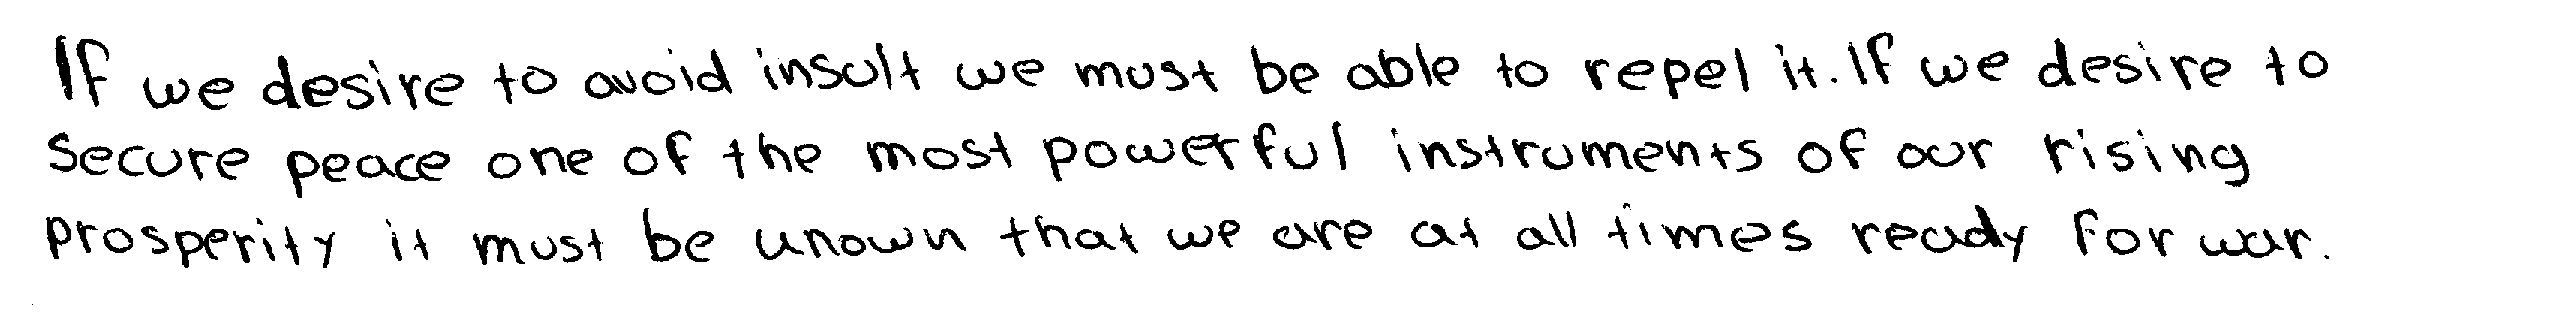 If we desire to avoid insult we must be able to repel it. If we desire to
secure peace one of the most powerful instruments of our rising
prosperity it must be unown that we are at all times ready for war.